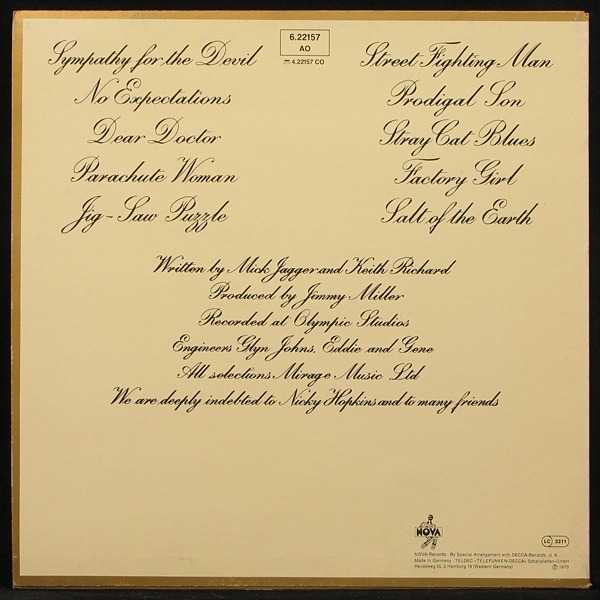 6.22157
AO
4.22157 CO
Sympathy for the Devil
No Expectations
Dear Doctor
Parachute Woman
Jig-Saw Puzzle
Street Fighting Man
Prodigal Son
Stray Cat Blues
Factory Girl
Salt of the Earth
Written by Mick Jagger and Keith Richard
Produced by Jimmy Miller
Recorded at Olympic Studios
Engineers Glyn Johns, Eddie and Gene
All selections Mirage Music Ltd
We are deeply indebted to Nicky Hopkins and to many friends
NOVA
LC 3311
NOVA-Records · By Special Arrangement with DECCA-Records, U. K.
Made in Germany · TELDEC »TELEFUNKEN-DECCA« Schallplatten-GmbH
Heussweg 25, 2 Hamburg 19 (Western Germany)